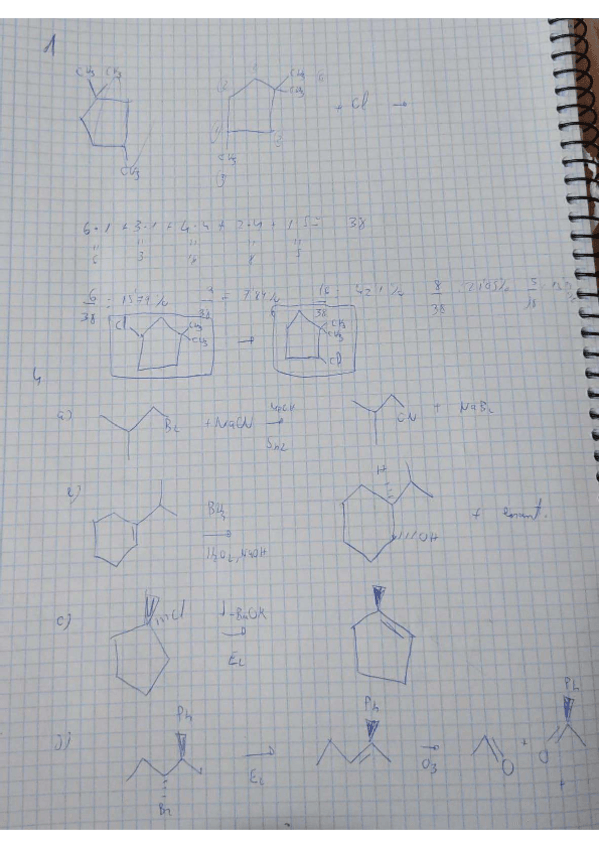 1
CH3 CH3
CH3
CH3
CH3
CH3
+ Cl →
6·1 + 3·1 + 4·4 + 2·4 + 1·5 = 38
6 3 8 5
6/38 = 15,79 % 3/38 = 7,89 % 16/38 = 42,1 % 8/38 = 21,05% 5/38
Cl CH3 CH3 → CH3 CH3 Cl
4
a) Br + NaCN → CN + NaBr
SN2
BH3
H2O2, NaOH
H
OH
+ enant.
c) Cl t-BuOK →
E2
Ph Ph Ph
d) → → +
Br E2 O3 O O
+